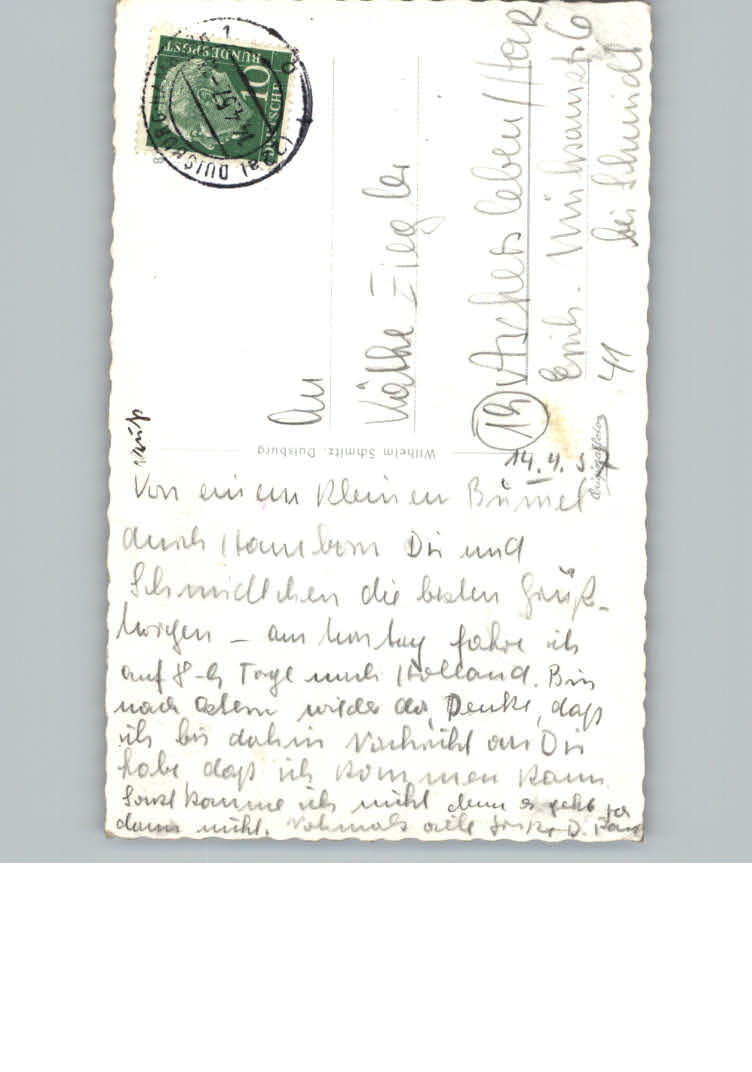 10
DEUTSCHE
BUNDESPOST
(22a) DUISBURG
14.4.57
An
Käthe Ziegler
19 Aschersleben/Harz
Erich-Mühsamstr. 6
41 bei Schmidt
Wilhelm Schmitz, Duisburg
14.4.57
Von einem kleinen Bummel
durch Hamborn Dir und
Schmidtchen die besten Grüße.
Morgen – am Montag fahre ich
auf 8 Tage nach Holland. Bin
nach Ostern wieder da, Denke, daß
ich bis dahin Nachricht von Dir
habe daß ich kommen kann.
Sonst komme ich nicht denn es geht ja
dann nicht. Nochmals viele Grüße D.